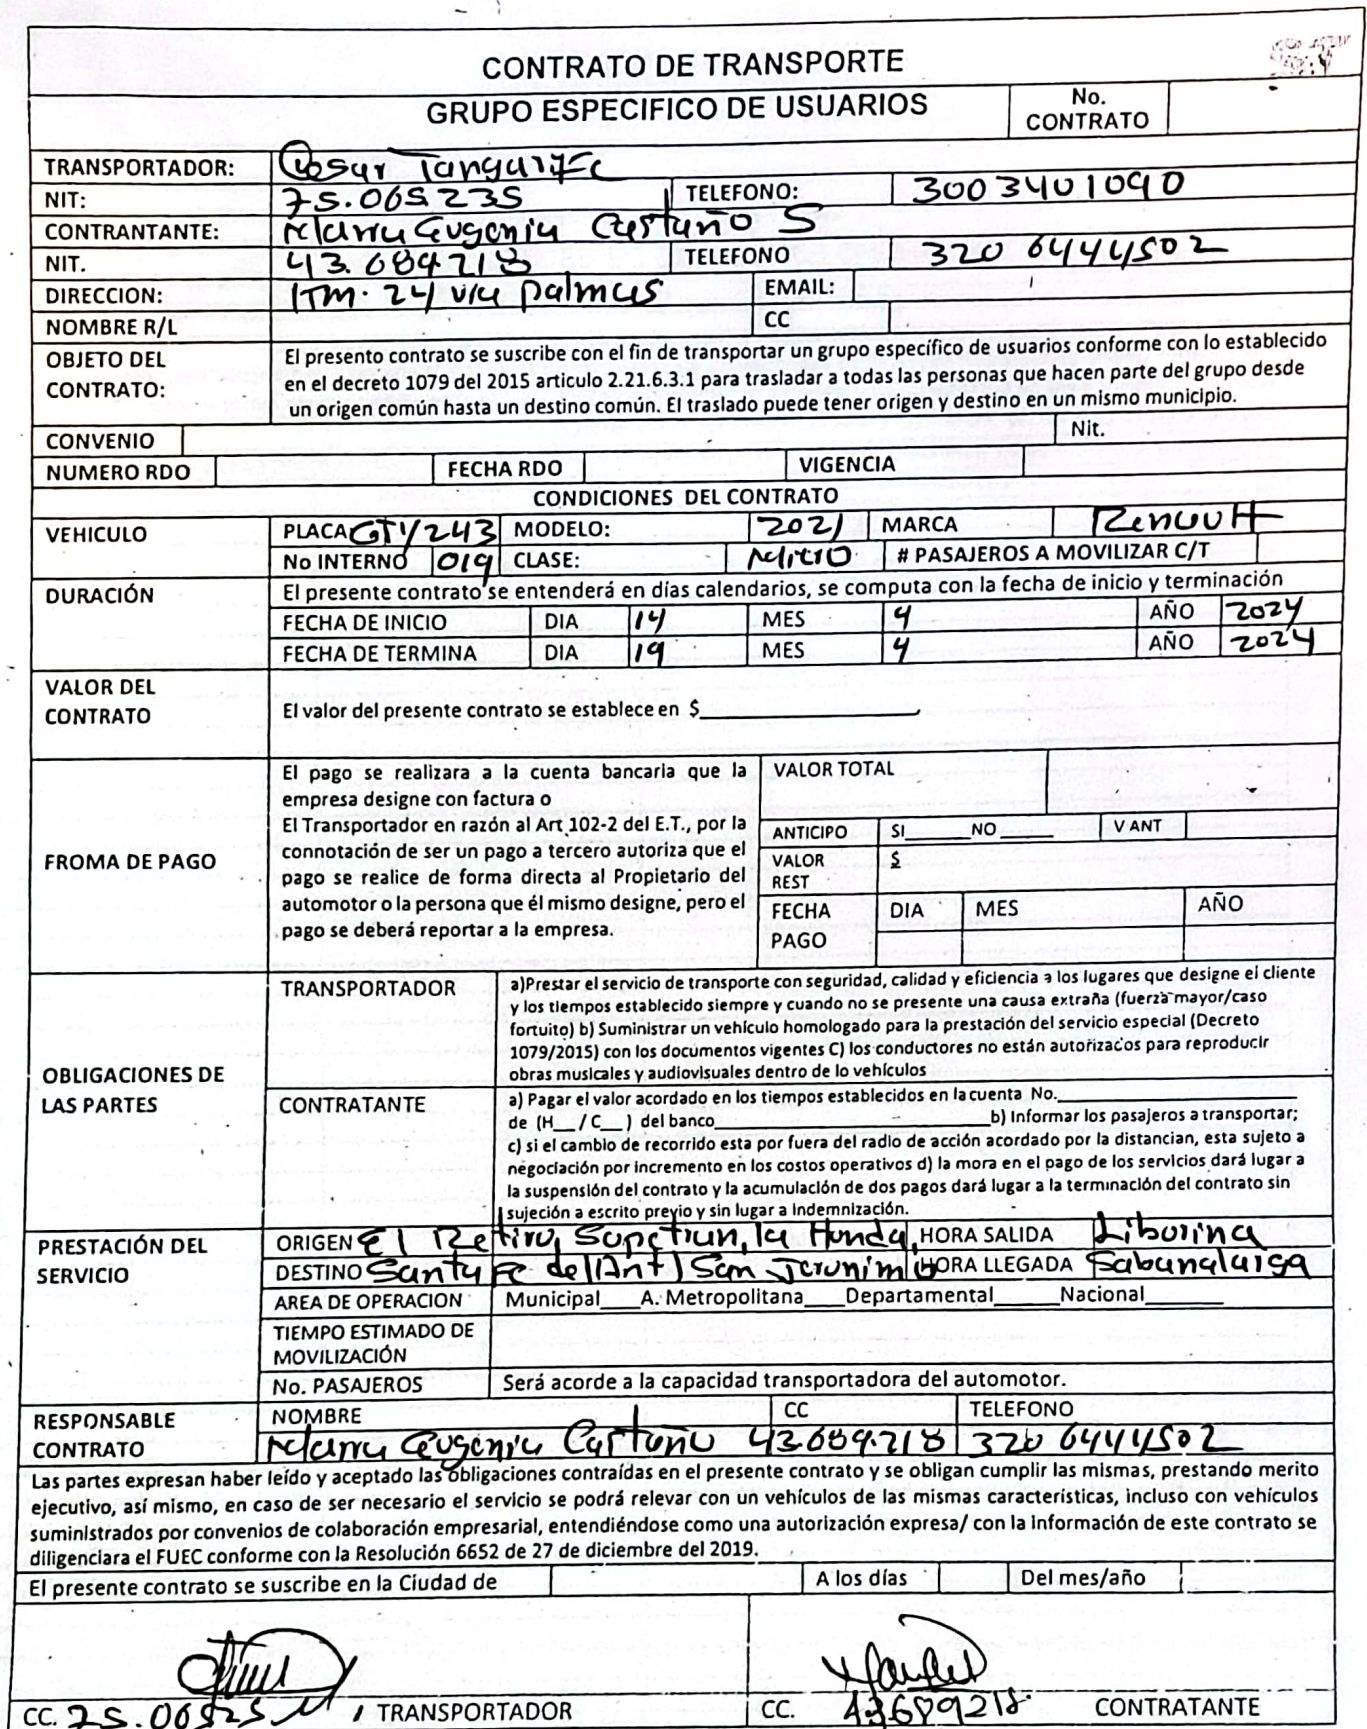 CONTRATO DE TRANSPORTE
GRUPO ESPECIFICO DE USUARIOS No. CONTRATO
TRANSPORTADOR: Cesar
NIT: 75.065.235 TELEFONO: 3003401090
CONTRANTANTE: Maria Eugenia Castaño S
NIT. 43.689.218 TELEFONO 320 6444502
DIRECCION: KM. 24 via palmas EMAIL:
NOMBRE R/L CC
OBJETO DEL CONTRATO: El presento contrato se suscribe con el fin de transportar un grupo específico de usuarios conforme con lo establecido
en el decreto 1079 del 2015 articulo 2.21.6.3.1 para trasladar a todas las personas que hacen parte del grupo desde
un origen común hasta un destino común. El traslado puede tener origen y destino en un mismo municipio.
CONVENIO Nit.
NUMERO RDO FECHA RDO VIGENCIA
CONDICIONES DEL CONTRATO
VEHICULO PLACA GTY243 MODELO: 2021 MARCA Renault
No INTERNO 019 CLASE: Micro # PASAJEROS A MOVILIZAR C/T
DURACIÓN El presente contrato se entenderá en días calendarios, se computa con la fecha de inicio y terminación
FECHA DE INICIO DIA 14 MES 4 AÑO 2024
FECHA DE TERMINA DIA 19 MES 4 AÑO 2024
VALOR DEL CONTRATO El valor del presente contrato se establece en $
FROMA DE PAGO
El pago se realizara a la cuenta bancaria que la
empresa designe con factura o
El Transportador en razón al Art 102-2 del E.T., por la
connotación de ser un pago a tercero autoriza que el
pago se realice de forma directa al Propietario del
automotor o la persona que él mismo designe, pero el
pago se deberá reportar a la empresa.
VALOR TOTAL
ANTICIPO SI______NO______ V ANT
VALOR REST $
FECHA PAGO DIA MES AÑO
OBLIGACIONES DE LAS PARTES
TRANSPORTADOR a)Prestar el servicio de transporte con seguridad, calidad y eficiencia a los lugares que designe el cliente
y los tiempos establecido siempre y cuando no se presente una causa extraña (fuerza mayor/caso
fortuito) b) Suministrar un vehículo homologado para la prestación del servicio especial (Decreto
1079/2015) con los documentos vigentes C) los conductores no están autorizados para reproducir
obras musicales y audiovisuales dentro de lo vehículos
CONTRATANTE a) Pagar el valor acordado en los tiempos establecidos en la cuenta No.
de (H__/C__) del banco______b) Informar los pasajeros a transportar;
c) si el cambio de recorrido esta por fuera del radio de acción acordado por la distancian, esta sujeto a
negociación por incremento en los costos operativos d) la mora en el pago de los servicios dará lugar a
la suspensión del contrato y la acumulación de dos pagos dará lugar a la terminación del contrato sin
sujeción a escrito previo y sin lugar a indemnización.
PRESTACIÓN DEL SERVICIO
ORIGEN El Retiro, Sopetran, la Honda, HORA SALIDA Liborina
DESTINO Santa fe del Ant/ San Jeronimo HORA LLEGADA Sabanalarga
AREA DE OPERACION Municipal____A. Metropolitana____Departamental______Nacional________
TIEMPO ESTIMADO DE MOVILIZACIÓN
No. PASAJEROS Será acorde a la capacidad transportadora del automotor.
RESPONSABLE CONTRATO
NOMBRE CC TELEFONO
Maria Eugenia Castaño 43.689.218 320 6444502
Las partes expresan haber leído y aceptado las obligaciones contraídas en el presente contrato y se obligan cumplir las mismas, prestando merito
ejecutivo, así mismo, en caso de ser necesario el servicio se podrá relevar con un vehículos de las mismas características, incluso con vehículos
suministrados por convenios de colaboración empresarial, entendiéndose como una autorización expresa/ con la información de este contrato se
diligenciara el FUEC conforme con la Resolución 6652 de 27 de diciembre del 2019.
El presente contrato se suscribe en la Ciudad de A los días Del mes/año
CC. TRANSPORTADOR CC. 43689218 CONTRATANTE